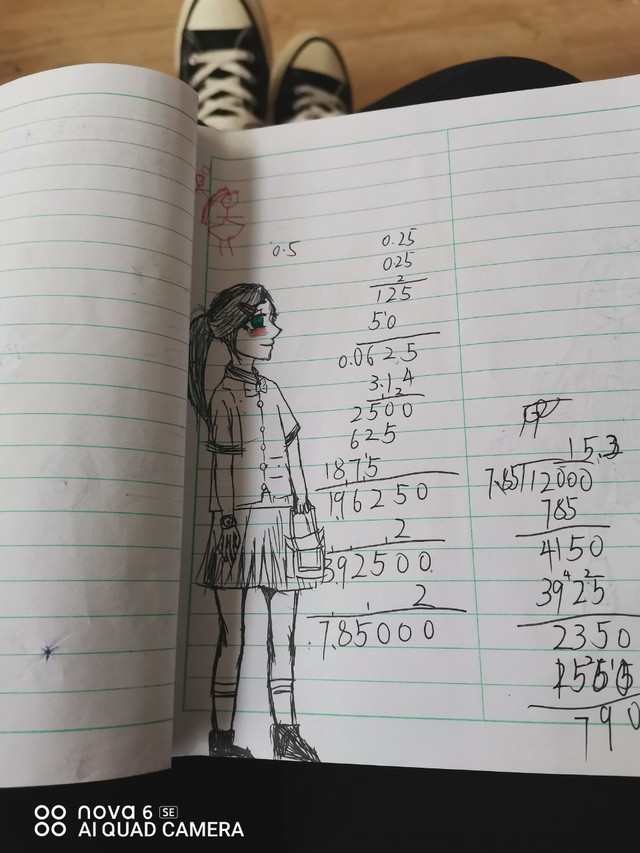 0.5
0.25
025
2
125
50
0.0625
3.14
2500
625
1875
196250
2
392500
2
785000
15.3
7.85 112000
785
4150
3925
2350
790
nova 6 SE
AI QUAD CAMERA